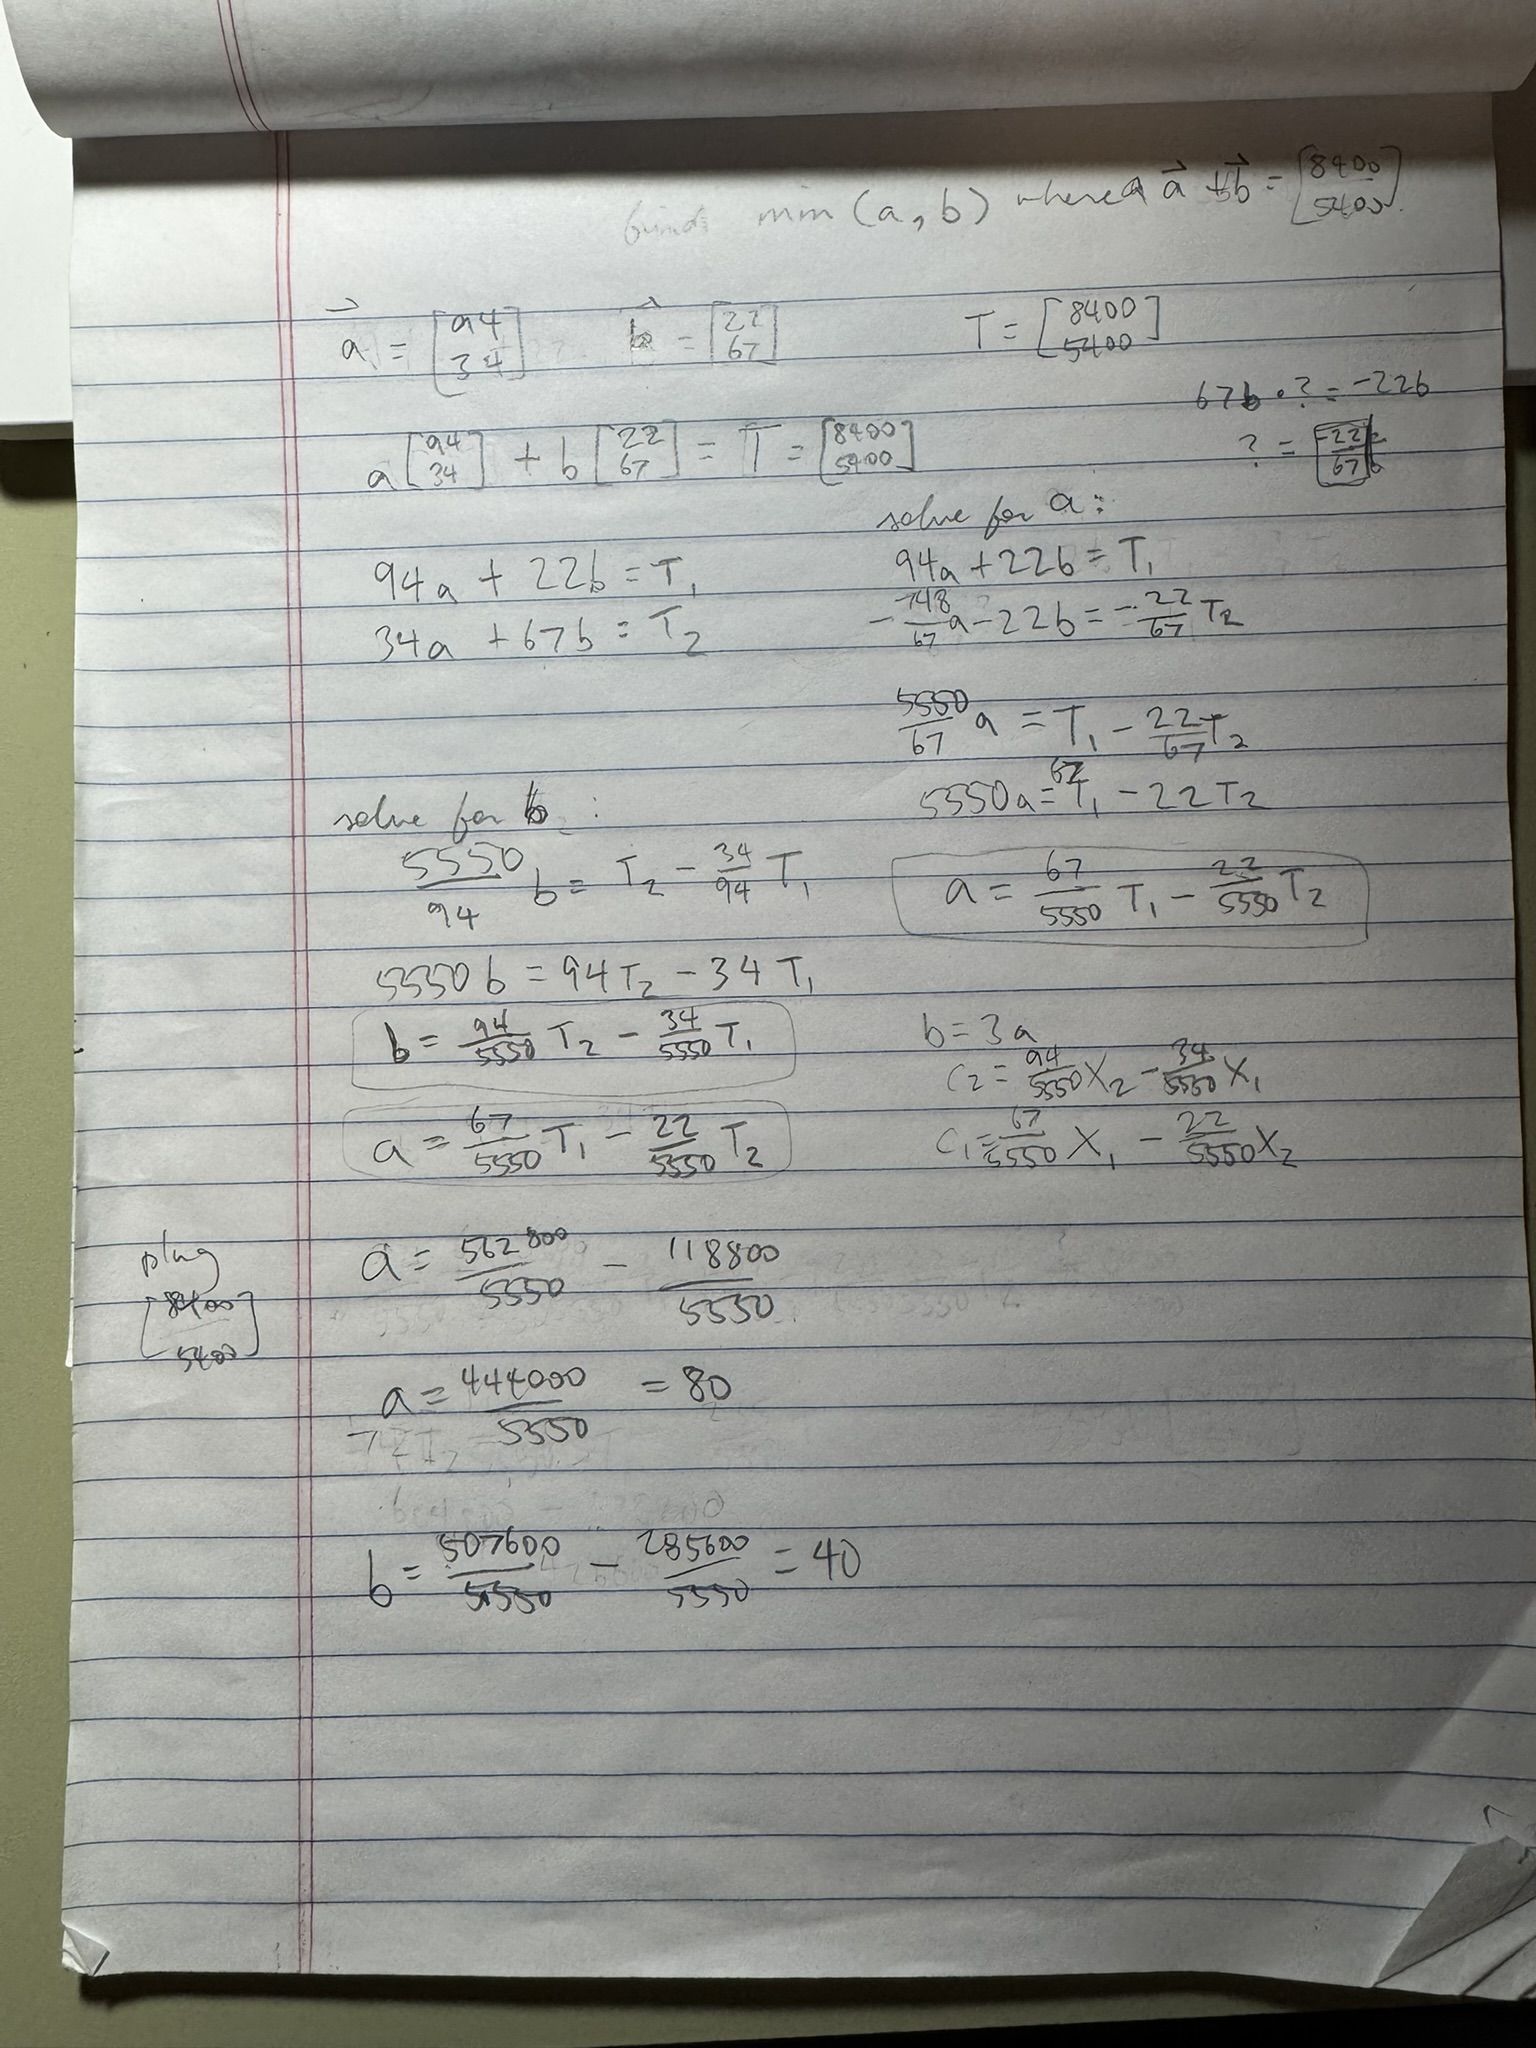 min (a, b) where a a⃗ + b b⃗ = [8400 5400]
a⃗ = [94 34] b⃗ = [22 67] T = [8400 5400]
67b · ? = -22b
? = -22/67
a [94 34] + b [22 67] = T = [8400 5400]
94a + 22b = T₁
34a + 67b = T₂
solve for a:
94a + 22b = T₁
-748/67 a - 22b = -22/67 T₂
5550/67 a = T₁ - 22/67 T₂
5550a = 67 T₁ - 22T₂
a = 67/5550 T₁ - 22/5550 T₂
solve for b:
5550/94 b = T₂ - 34/94 T₁
5550b = 94T₂ - 34T₁
b = 94/5550 T₂ - 34/5550 T₁
a = 67/5550 T₁ - 22/5550 T₂
b = 3a
C₂ = 94/5550 X₂ - 34/5550 X₁
C₁ = 67/5550 X₁ - 22/5550 X₂
plug
[8400 5400]
a = 562800/5550 - 118800/5550
a = 444000/5550 = 80
b = 507600/5550 - 285600/5550 = 40